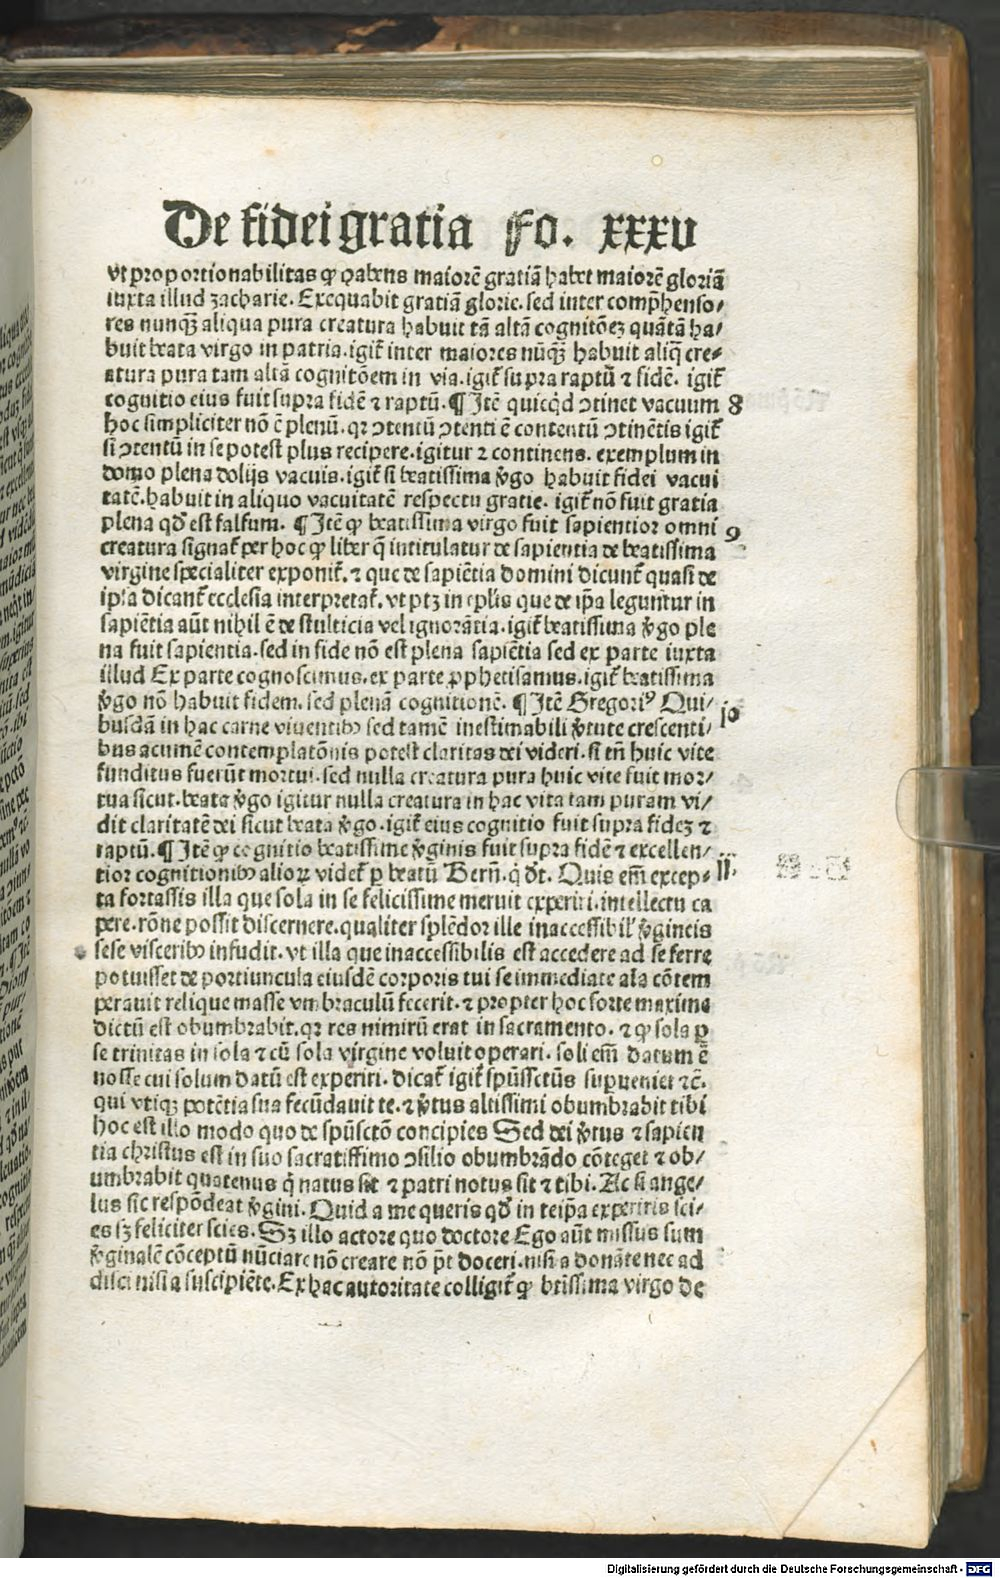 De fidei gratia Fo. xxxv
vt proportionabilitas ꝙ habens maiorē gratiā habet maiorē gloriā
iuxta illud zacharie. Exequabit gratiā glorie. sed inter comp̄henso⸗
res nunqꝫ aliqua pura creatura habuit tā altā cognitōeꝫ quātā ha⸗
buit beata virgo in patria. igit̄ inter maiores nūqꝫ habuit aliq̄ cre⸗
atura pura tam altā cognitōem in via. igit̄ supra raptū ⁊ fidē. igit̄
cognitio eius fuit supra fidē ⁊ raptū. ¶ Itē quicq̇d ↄtinet vacuum 8
hoc simpliciter nō ē plenū. qꝛ ↄtentū ↄtenti ē contentū ↄtinētis igit̄
si ↄtentū in se potest plus recipere. igitur ⁊ continens. exemplum in
domo plena dolijs vacuis. igit̄ si beatissima v̄go habuit fidei vacui
tatē. habuit in aliquo vacuitatē respectu gratie. igit̄ nō fuit gratia
plena qd̄ est falsum. ¶ Itē ꝙ beatissima virgo fuit sapientior omni 9
creatura signat̄ per hoc ꝙ liber q̄ intitulatur de sapientia de beatissima
virgine specialiter exponit̄. ⁊ que de sapiētia domini dicunt̄ quasi de
ipsa dicant̄ ecclesia interpretat̄. vt ptꝫ in eplis que de ip̄a legunt̄ur in
sapiētia aūt nihil ē de stulticia vel ignorātia. igit̄ beatissima v̄go ple
na fuit sapientia. sed in fide nō est plena sapiētia sed ex parte iuxta
illud Ex parte cognoscimus. ex parte ꝓphetisamus. igit̄ beatissima
v̄go nō habuit fidem. sed plenā cognitionē. ¶ Itē Gregoriꝰ Qui⸗ 10
busdā in hac carne viventibꝫ sed tamē inestimabili v̄tute crescenti⸗
bus acumē contemplatōnis potest claritas dei videri. si tn̄ huic vite
funditus fuerūt mortui. sed nulla creatura pura huic vite fuit mor⸗
tua sicut. beata v̄go igitur nulla creatura in hac vita tam puram vi⸗
dit claritatē dei sicut beata v̄go. igit̄ eius cognitio fuit supra fideꝫ ⁊
raptū. ¶ Itē ꝙ cognitio beatissime v̄ginis fuit supra fidē ⁊ excellen⸗
tior cognitionibꝫ alioꝝ videt̄ ꝑ beatū Bern̄. q̇ d̄t. Quis em̄ excep⸗ 11.
ta fortassis illa que sola in se felicissime meruit experiri. intellectu ca
pere. rōne possit discernere. qualiter splēdor ille inaccessibil̄ v̄gineis
sese visceribꝫ infudit. vt illa que inaccessibilis est accedere ad se ferre
potuisset de portiuncula eiusdē corporis tui se immediate ala cōtem
peravit relique masse vmbraculū fecerit. ⁊ propter hoc forte maxime
dictū est obumbrabit. qꝛ res nimirū erat in sacramento. ⁊ ꝙ sola ꝑ
se trinitas in sola ⁊ cū sola virgine voluit operari. soli em̄ datum ē
nosse cui solum datū est experiri. dicat̄ igit̄ spūssctūs superueniet ⁊c̄.
qui vtiqꝫ potētia sua fecūdavit te. ⁊ v̄tus altissimi obumbrabit tibi
hoc est illo modo quo de spūsctō concipies Sed dei v̄tus ⁊ sapien
tia christus est in suo sacratissimo ↄsilio obumbrādo cōteget ⁊ ob⸗
umbrabit quatenus q̄ natus sit ⁊ patri notus sit ⁊ tibi. Ac si ange⸗
lus sic respōdeat v̄gini. Quid a me queris qd̄ in teip̄a experiris sci⸗
es sꝫ feliciter scies. Sꝫ illo actore quo doctore Ego aūt missus sum
v̄ginalē cōceptū nūciare nō creare nō p̄t doceri. nisi a donāte nec ad
disci nisi a suscipiēte. Ex hac autoritate colligit̄ ꝙ btissima virgo de
Digitalisierung gefördert durch die Deutsche Forschungsgemeinschaft - DFG